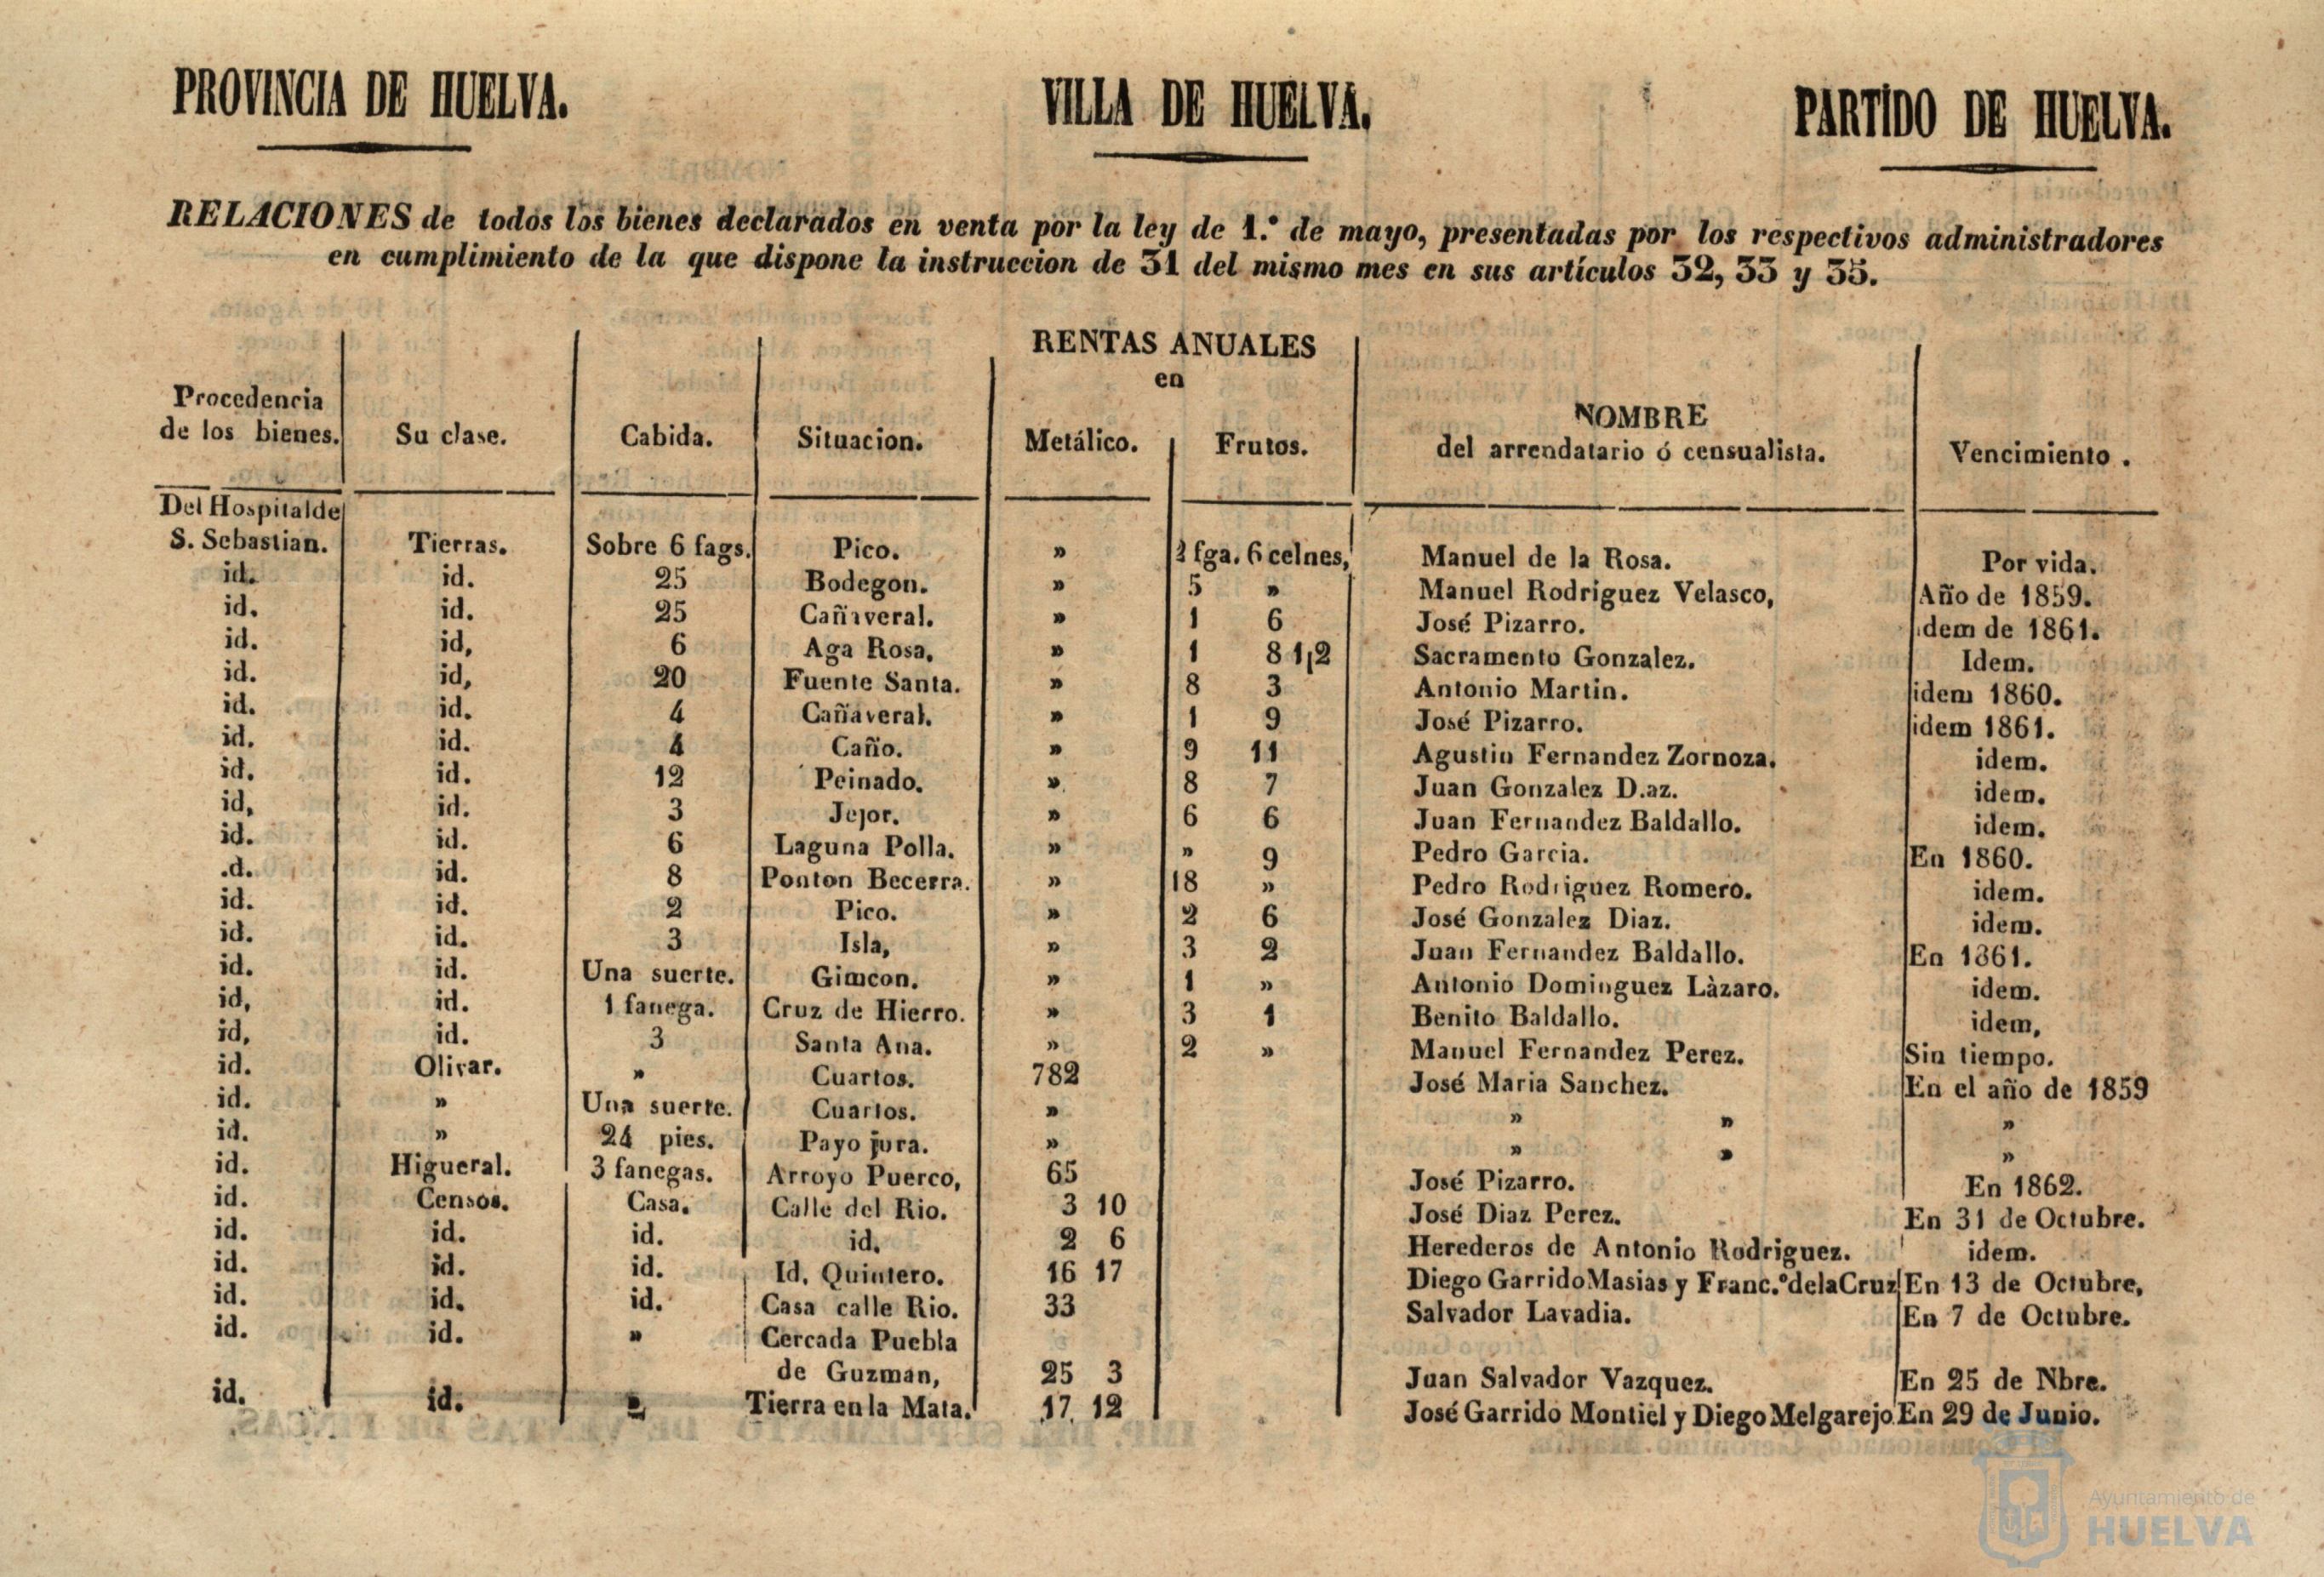 PROVINCIA DE HUELVA. VILLA DE HUELVA. PARTIDO DE HUELVA.
RELACIONES de todos los bienes declarados en venta por la ley de 1.º de mayo, presentadas por los respectivos administradores
en cumplimiento de la que dispone la instruccion de 31 del mismo mes en sus artículos 32, 33 y 35.
RENTAS ANUALES
en
Procedencia
de los bienes. Su clase. Cabida. Situacion. Metálico. Frutos. NOMBRE
del arrendatario ó censualista. Vencimiento.
Del Hospital de
S. Sebastian. Tierras. Sobre 6 fags. Pico. » fga. 6 celnes, Manuel de la Rosa. Por vida.
id. id. 25 Bodegon. » 5 » Manuel Rodriguez Velasco, Año de 1859.
id. id. 25 Cañaveral. » 1 6 José Pizarro. idem de 1861.
id. id, 6 Aga Rosa. » 1 8 1,2 Sacramento Gonzalez. Idem.
id. id, 20 Fuente Santa. » 8 3 Antonio Martin. idem 1860.
id. id. 4 Cañaveral. » 1 9 José Pizarro. idem 1861.
id. id. 4 Caño. » 9 11 Agustin Fernandez Zornoza. idem.
id. id. 12 Peinado. » 8 7 Juan Gonzalez D.az. idem.
id, id. 3 Jejor. » 6 6 Juan Fernandez Baldallo. idem.
id. id. 6 Laguna Polla. » » 9 Pedro Garcia. En 1860.
.d. id. 8 Ponton Becerra. » 18 » Pedro Rodriguez Romero. idem.
id. id. 2 Pico. » 2 6 José Gonzalez Diaz. idem.
id. id. 3 Isla, » 3 2 Juan Fernandez Baldallo. En 1861.
id. id. Una suerte. Gimcon. » 1 » Antonio Dominguez Làzaro. idem.
id, id. 1 fanega. Cruz de Hierro. » 3 1 Benito Baldallo. idem,
id, id. 3 Santa Ana. » 2 » Manuel Fernandez Perez. Sin tiempo.
id. Olivar. » Cuartos. 782 José Maria Sanchez. En el año de 1859
id. » Una suerte. Cuartos. » » » »
id. » 24 pies. Payo jura. » » » »
id. Higueral. 3 fanegas. Arroyo Puerco, 65 José Pizarro. En 1862.
id. Censos. Casa. Calle del Rio. 3 10 José Diaz Perez. En 31 de Octubre.
id. id. id. id. 2 6 Herederos de Antonio Rodriguez. idem.
id. id. id. Id. Quintero. 16 17 Diego Garrido Masias y Franc.º de la Cruz En 13 de Octubre,
id. id. id. Casa calle Rio. 33 Salvador Lavadia. En 7 de Octubre.
id. id. » Cercada Puebla
de Guzman, 25 3 Juan Salvador Vazquez. En 25 de Nbre.
id. id. » Tierra en la Mata. 17 12 José Garrido Montiel y Diego Melgarejo En 29 de Junio.
Ayuntamiento de
HUELVA